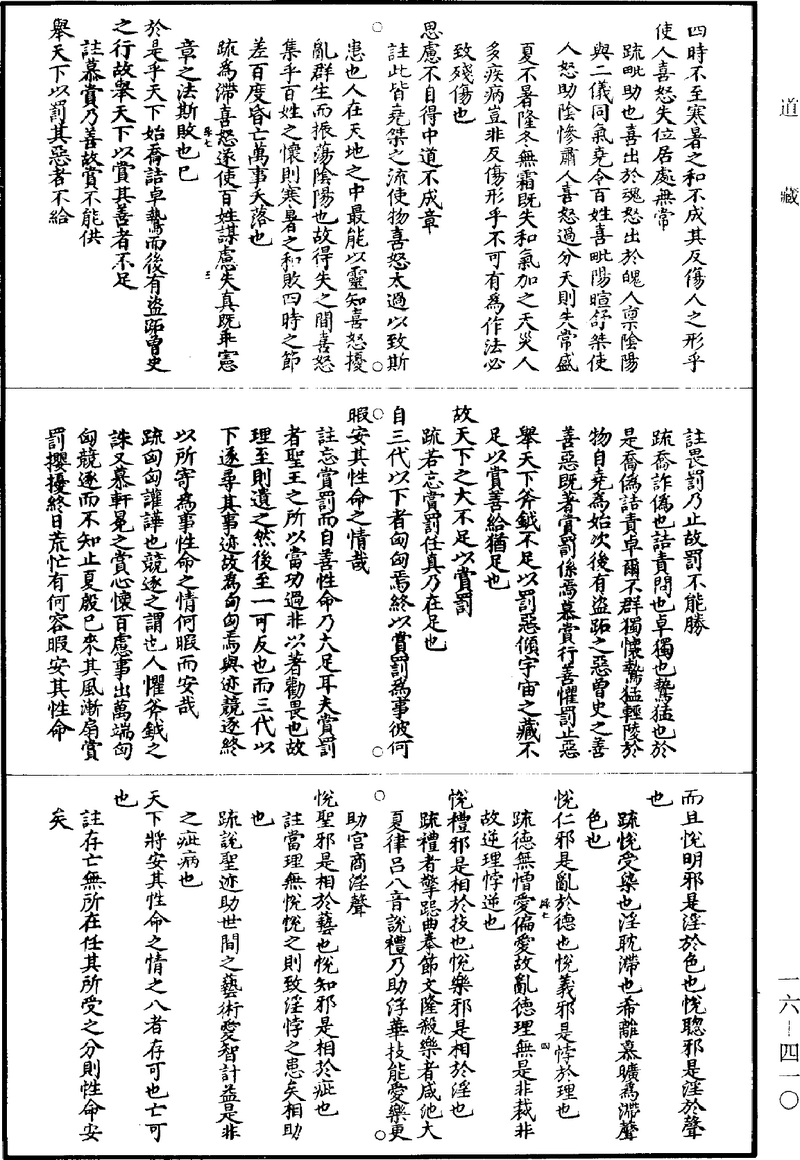 道藏
四時不至寒暑之和不成其反傷人之形乎
使人喜怒失位居處無常
疏毗助也喜出於魂怒出於魄人稟陰陽
與二儀同氣堯令百姓喜毗陽暄舒桀使
人怒助陰慘肅人喜怒過分天則失常盛
夏不暑隆冬無霜既失和氣加之天災人
多疾病豈非反傷形乎不可有為作法必
致殘傷也
思慮不自得中道不成章
註此皆堯桀之流使物喜怒太過以致斯
患也人在天地之中最能以靈知喜怒擾
亂群生而振蕩陰陽也故得失之間喜怒
集乎百姓之懷則寒暑之和敗四時之節
差百度昏亡萬事夭落也
疏為滯喜怒遂使百姓謀慮失真既乖憲
章之法斯敗也已
於是乎天下始喬詰卓鷙而後有盜跖曾史
之行故舉天下以賞其善者不足
註慕賞乃善故賞不能供
舉天下以罰其惡者不給
註畏罰乃止故罰不能勝
疏喬詐偽也詰責問也卓獨也鷙猛也於
是喬偽詰責卓爾不群獨懷鷙猛輕陵於
物自堯為始次後有盜跖之惡曾史之善
善惡既著賞罰係焉慕賞行善懼罰止惡
舉天下斧鉞不足以罰惡傾宇宙之藏不
足以賞善給猶足也
故天下之大不足以賞罰
疏若忘賞罰任真乃在足也
自三代以下者匈匈焉終以賞罰為事彼何
暇安其性命之情哉
註忘賞罰而自善性命乃大足耳夫賞罰
者聖王之所以當功過非以著勸畏也故
理至則遺之然後至一可反也而三代以
下遂尋其事迹故為匈匈焉與迹競逐終
以所寄為事性命之情何暇而安哉
疏匈匈讙譁也競逐之謂也人懼斧鉞之
誅又慕軒冕之賞心懷百慮事出萬端匈
匈競逐而不知止夏殷已來其風漸扇賞
罰攖擾終日荒忙有何容暇安其性命
而且悅明邪是淫於色也悅聰邪是淫於聲
也
疏悅受染也淫耽滯也希離慕曠為滯聲
色也
悅仁邪是亂於德也悅義邪是悖於理也
疏德無憎愛偏愛故亂德理無是非裁非
故逆理悖逆也
悅禮邪是相於技也悅樂邪是相於淫也
疏禮者擎跽曲奉節文隆殺樂者咸池大
夏律呂八音說禮乃助浮華技能愛樂更
助宮商淫聲
悅聖邪是相於藝也悅知邪是相於疵也
註當理無悅悅之則致淫悖之患矣相助
也
疏說聖迹助世間之藝術愛智計益是非
之疵病也
天下將安其性命之情之八者存可也亡可
也
註存亡無所在任其所受之分則性命安
矣
一六—四一〇